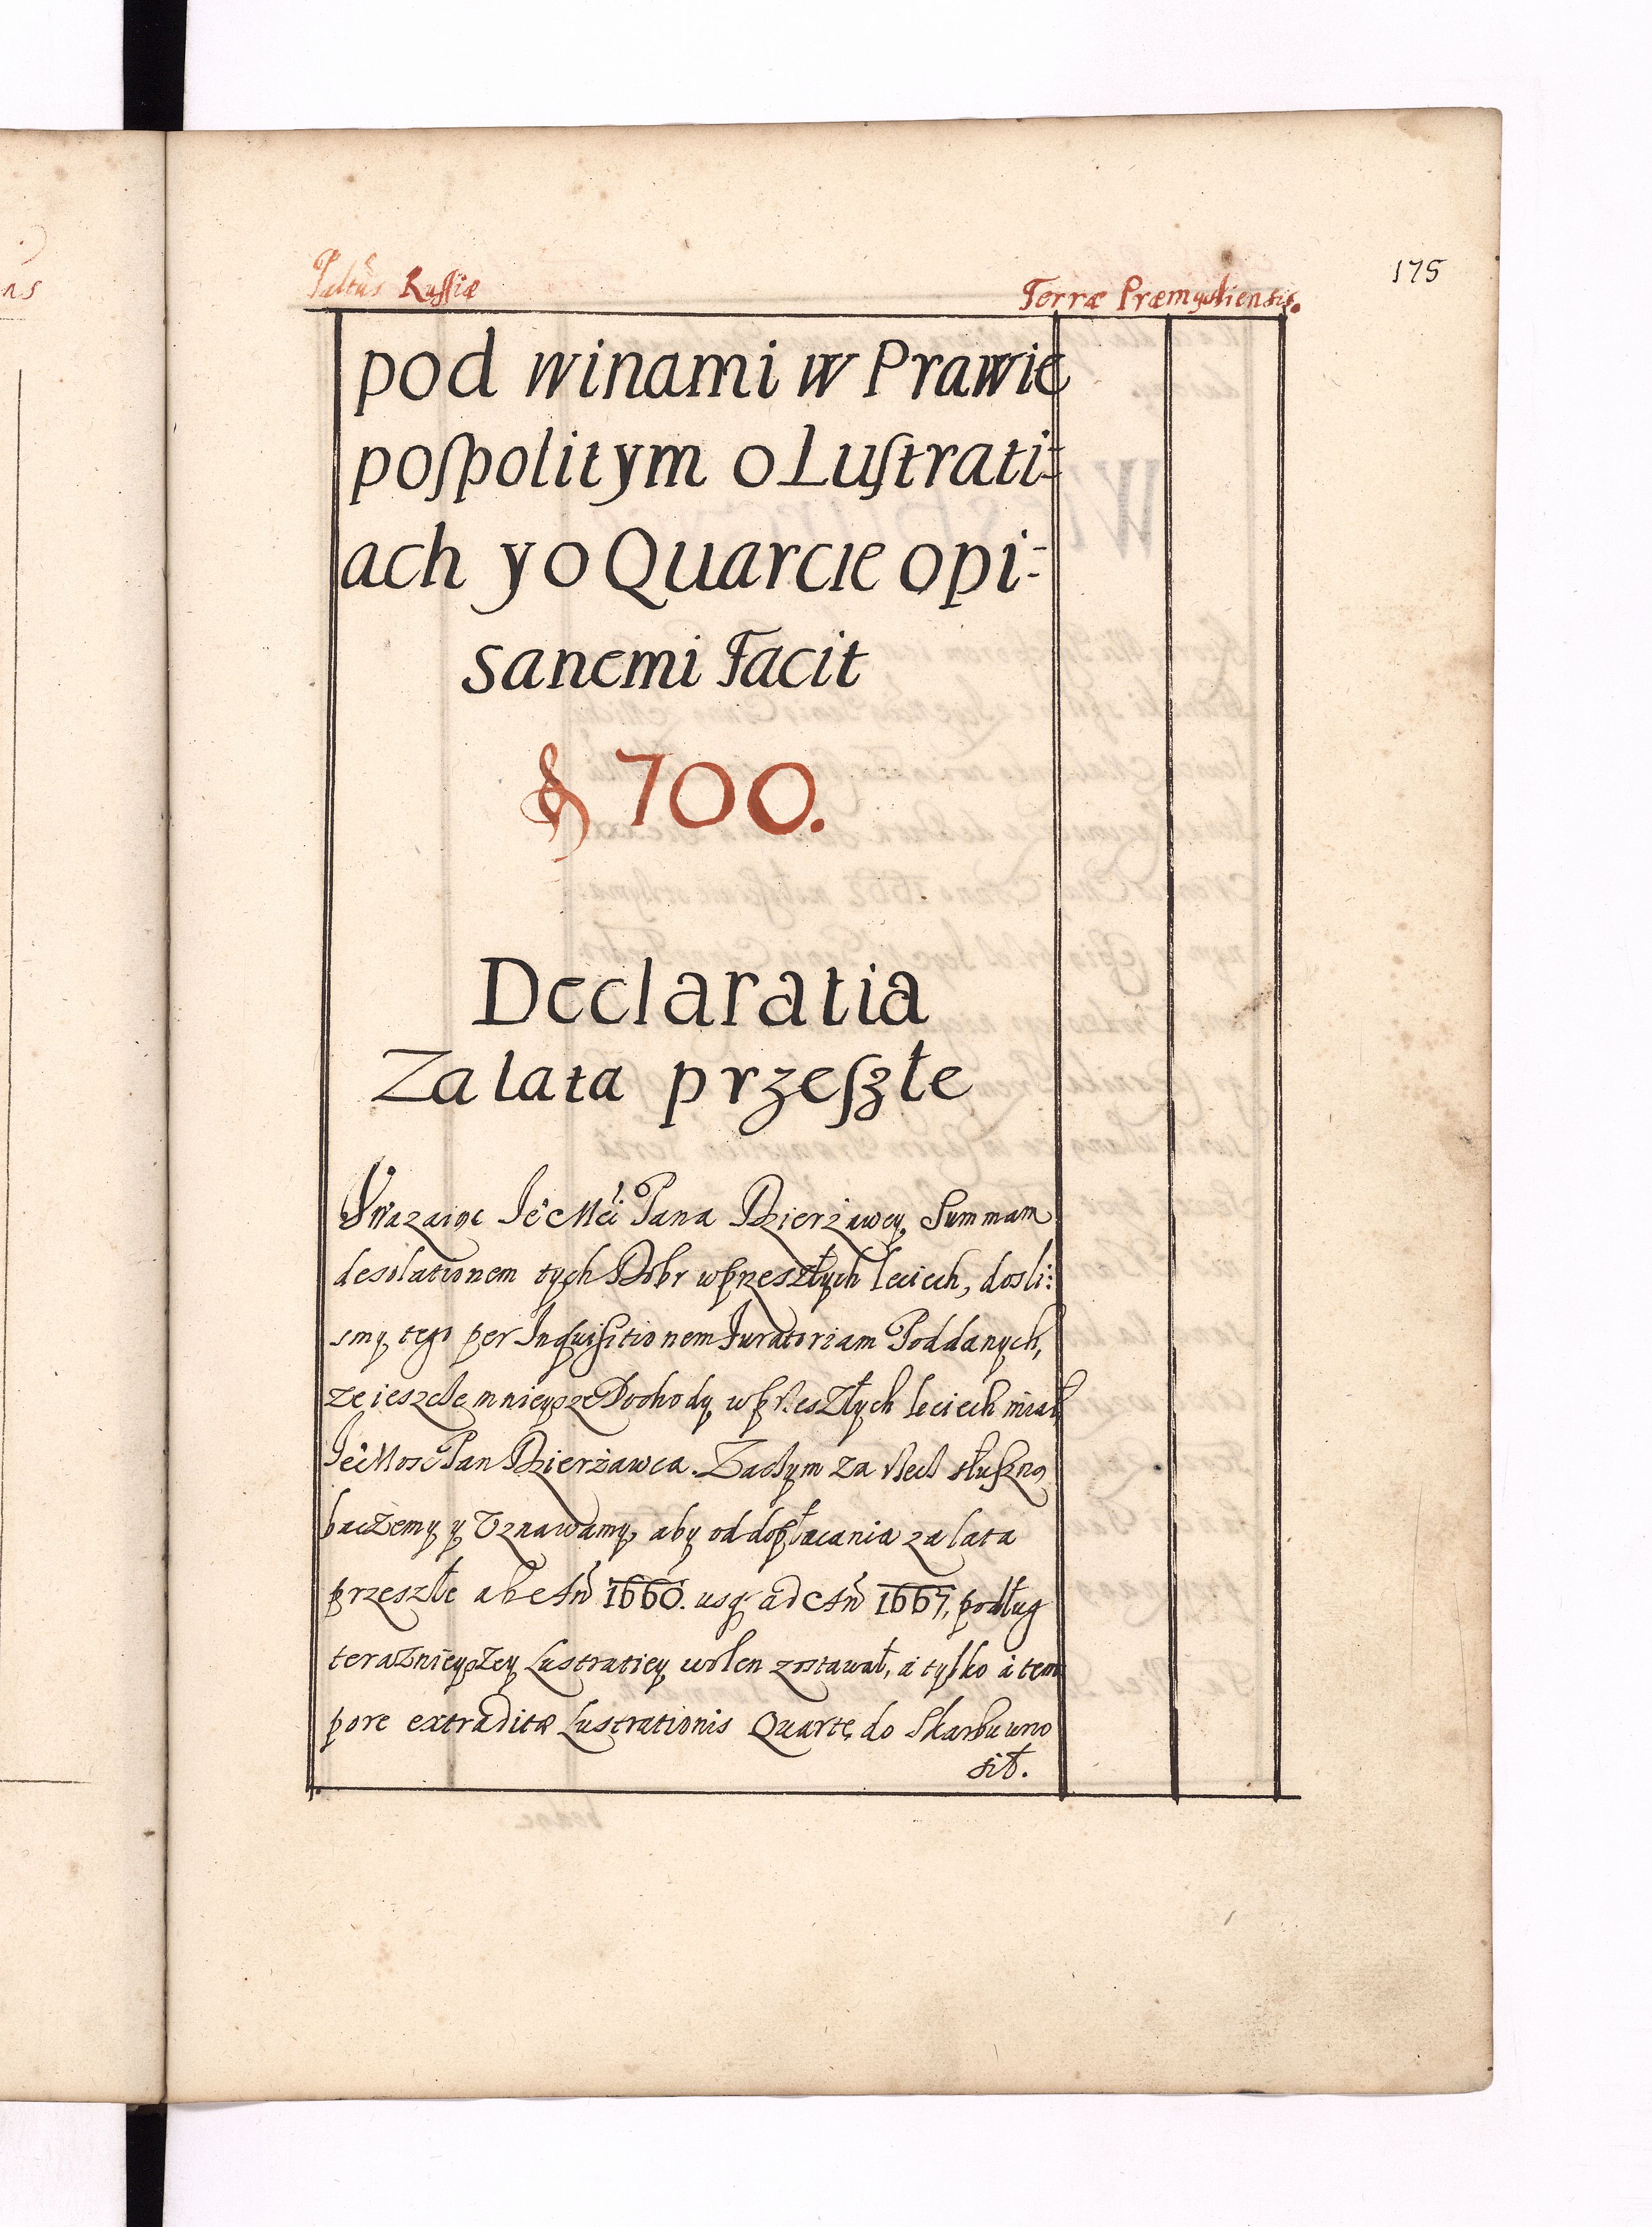 Paltûs Russiæ
Terræ Præmysliensis.
175
pod winami w Prawie
pospolitym o Lustrati=
ach y o Quarcie opi-
sanemi Facit
700.
Declaratia
Za lata przeszłe
Uwazaiąc Pana Dzierżawcy Summam
desolationem tych Dobr w przeszłych leciech, dosli=
smy tego per Inquisitionem Iuratoriam Poddanych,
ze ieszcze mnieysze Dochody w przeszłych leciech miał
JeMosc Pan Dzierżawca. Zaczym za rzecz słuszną
baczemy y Uznawamy, aby od dopłacania za lata
przeszłe ab Añ 1660. usq ad Añ 1667, podług
teraznieyszey Lustratiey wolen zostawał, a tylko à tem
pore extraditæ Lustrationis Quartę do Skarbu wno
sił.